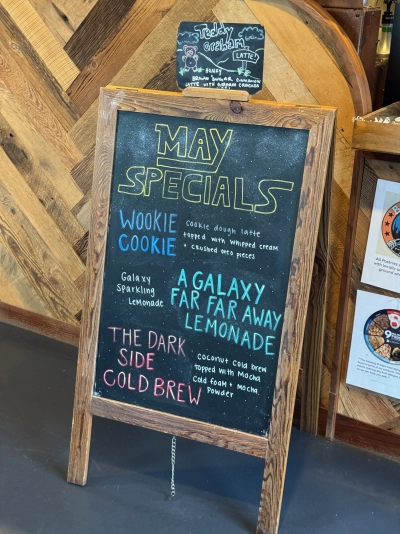 Teddy
Graham
LATTE!
HONEY
BROWN SUGAR, CINNAMON
LATTE WITH GRAHAM CRACKER
MAY
SPECIALS
WOOKIE
COOKIE
Cookie dough latte
topped with whipped cream
+ crushed oreo pieces
Galaxy
Sparkling
Lemonade
A GALAXY
FAR FAR AWAY
LEMONADE
THE DARK
SIDE
COLD BREW
Coconut Cold brew
Topped with Mocha
Cold foam + mocha
Powder